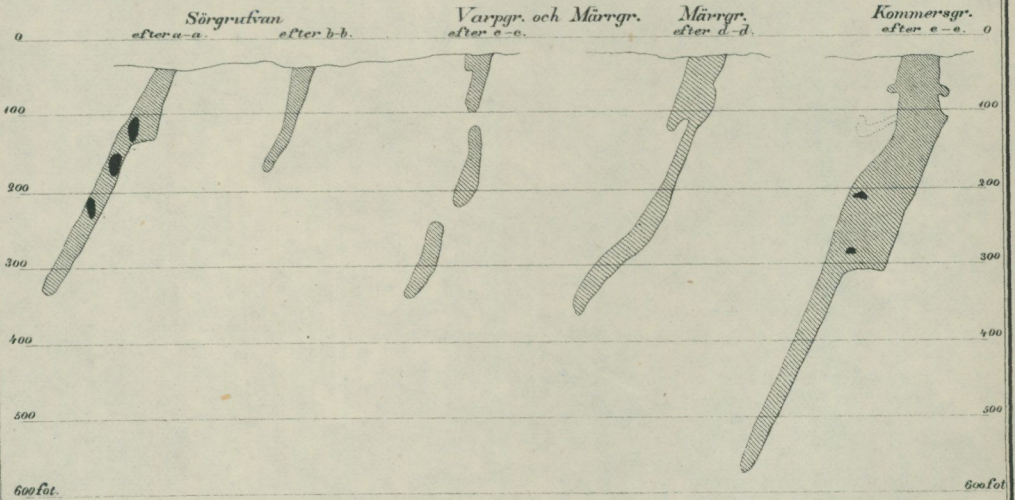 Sörgrufvan Varpgr. och Märrgr. Märrgr. Kommersgr.
efter a–a. efter b–b. efter c–c. efter d–d. efter e–e.
0 0
100 100
200 200
300 300
400 400
500 500
600 fot. 600 fot